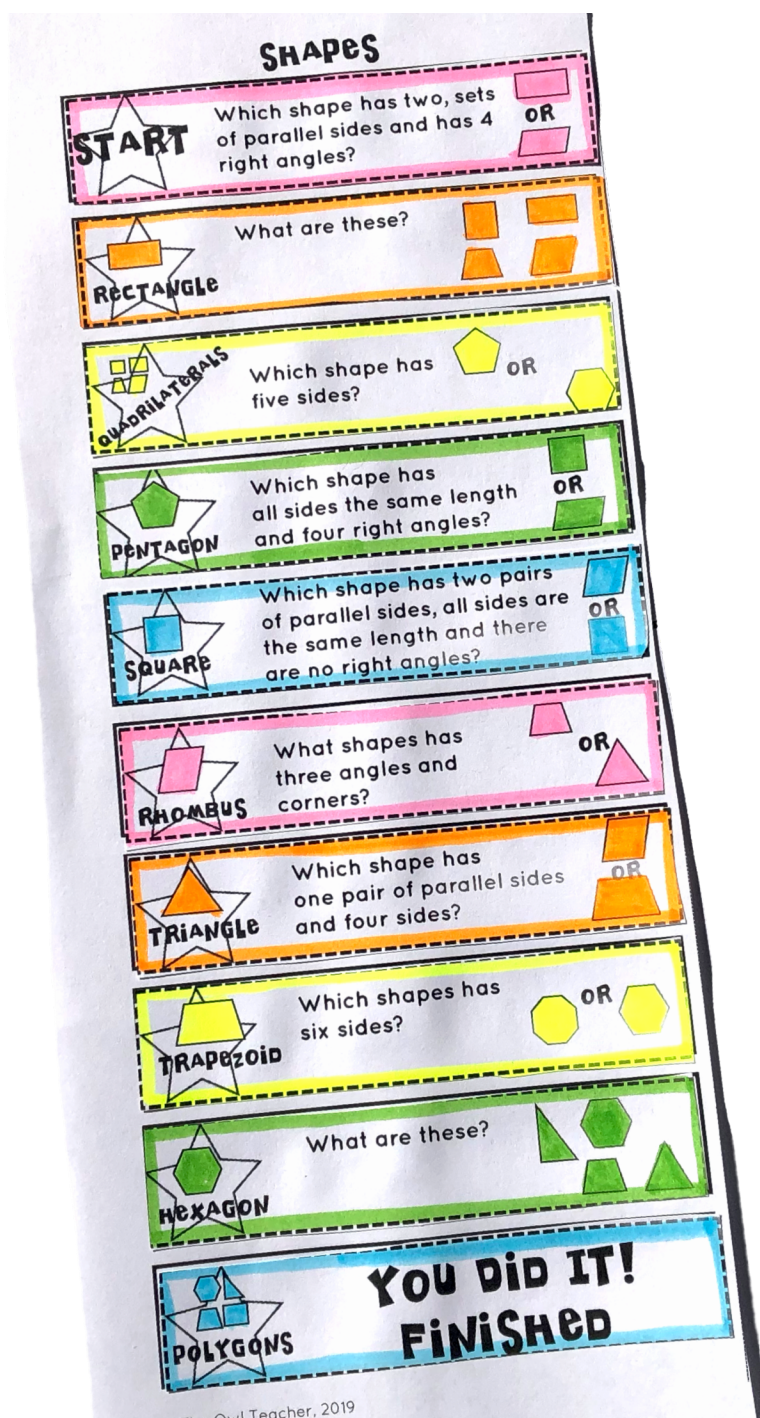 SHAPES
START
Which shape has two, sets
of parallel sides and has 4
right angles?
OR
RECTANGLE
What are these?
QUADRILATERALS
Which shape has
five sides?
OR
PENTAGON
Which shape has
all sides the same length
and four right angles?
OR
SQUARE
Which shape has two pairs
of parallel sides, all sides are
the same length and there
are no right angles?
OR
RHOMBUS
What shapes has
three angles and
corners?
OR
TRIANGLE
Which shape has
one pair of parallel sides
and four sides?
OR
TRAPEZOID
Which shapes has
six sides?
OR
HEXAGON
What are these?
POLYGONS
YOU DID IT!
FINISHED
Owl Teacher, 2019